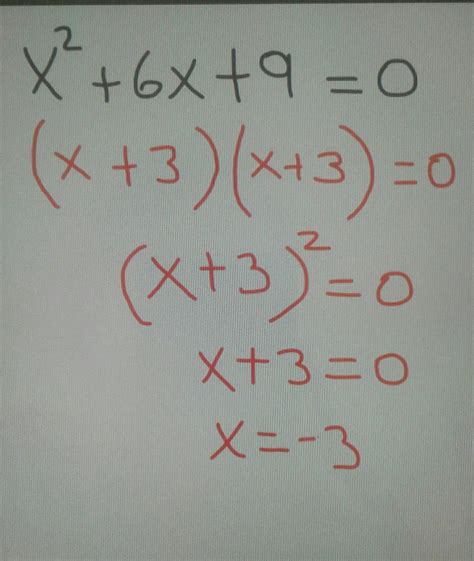 x² + 6x + 9 = 0
(x + 3)(x + 3) = 0
(x + 3)² = 0
x + 3 = 0
x = -3